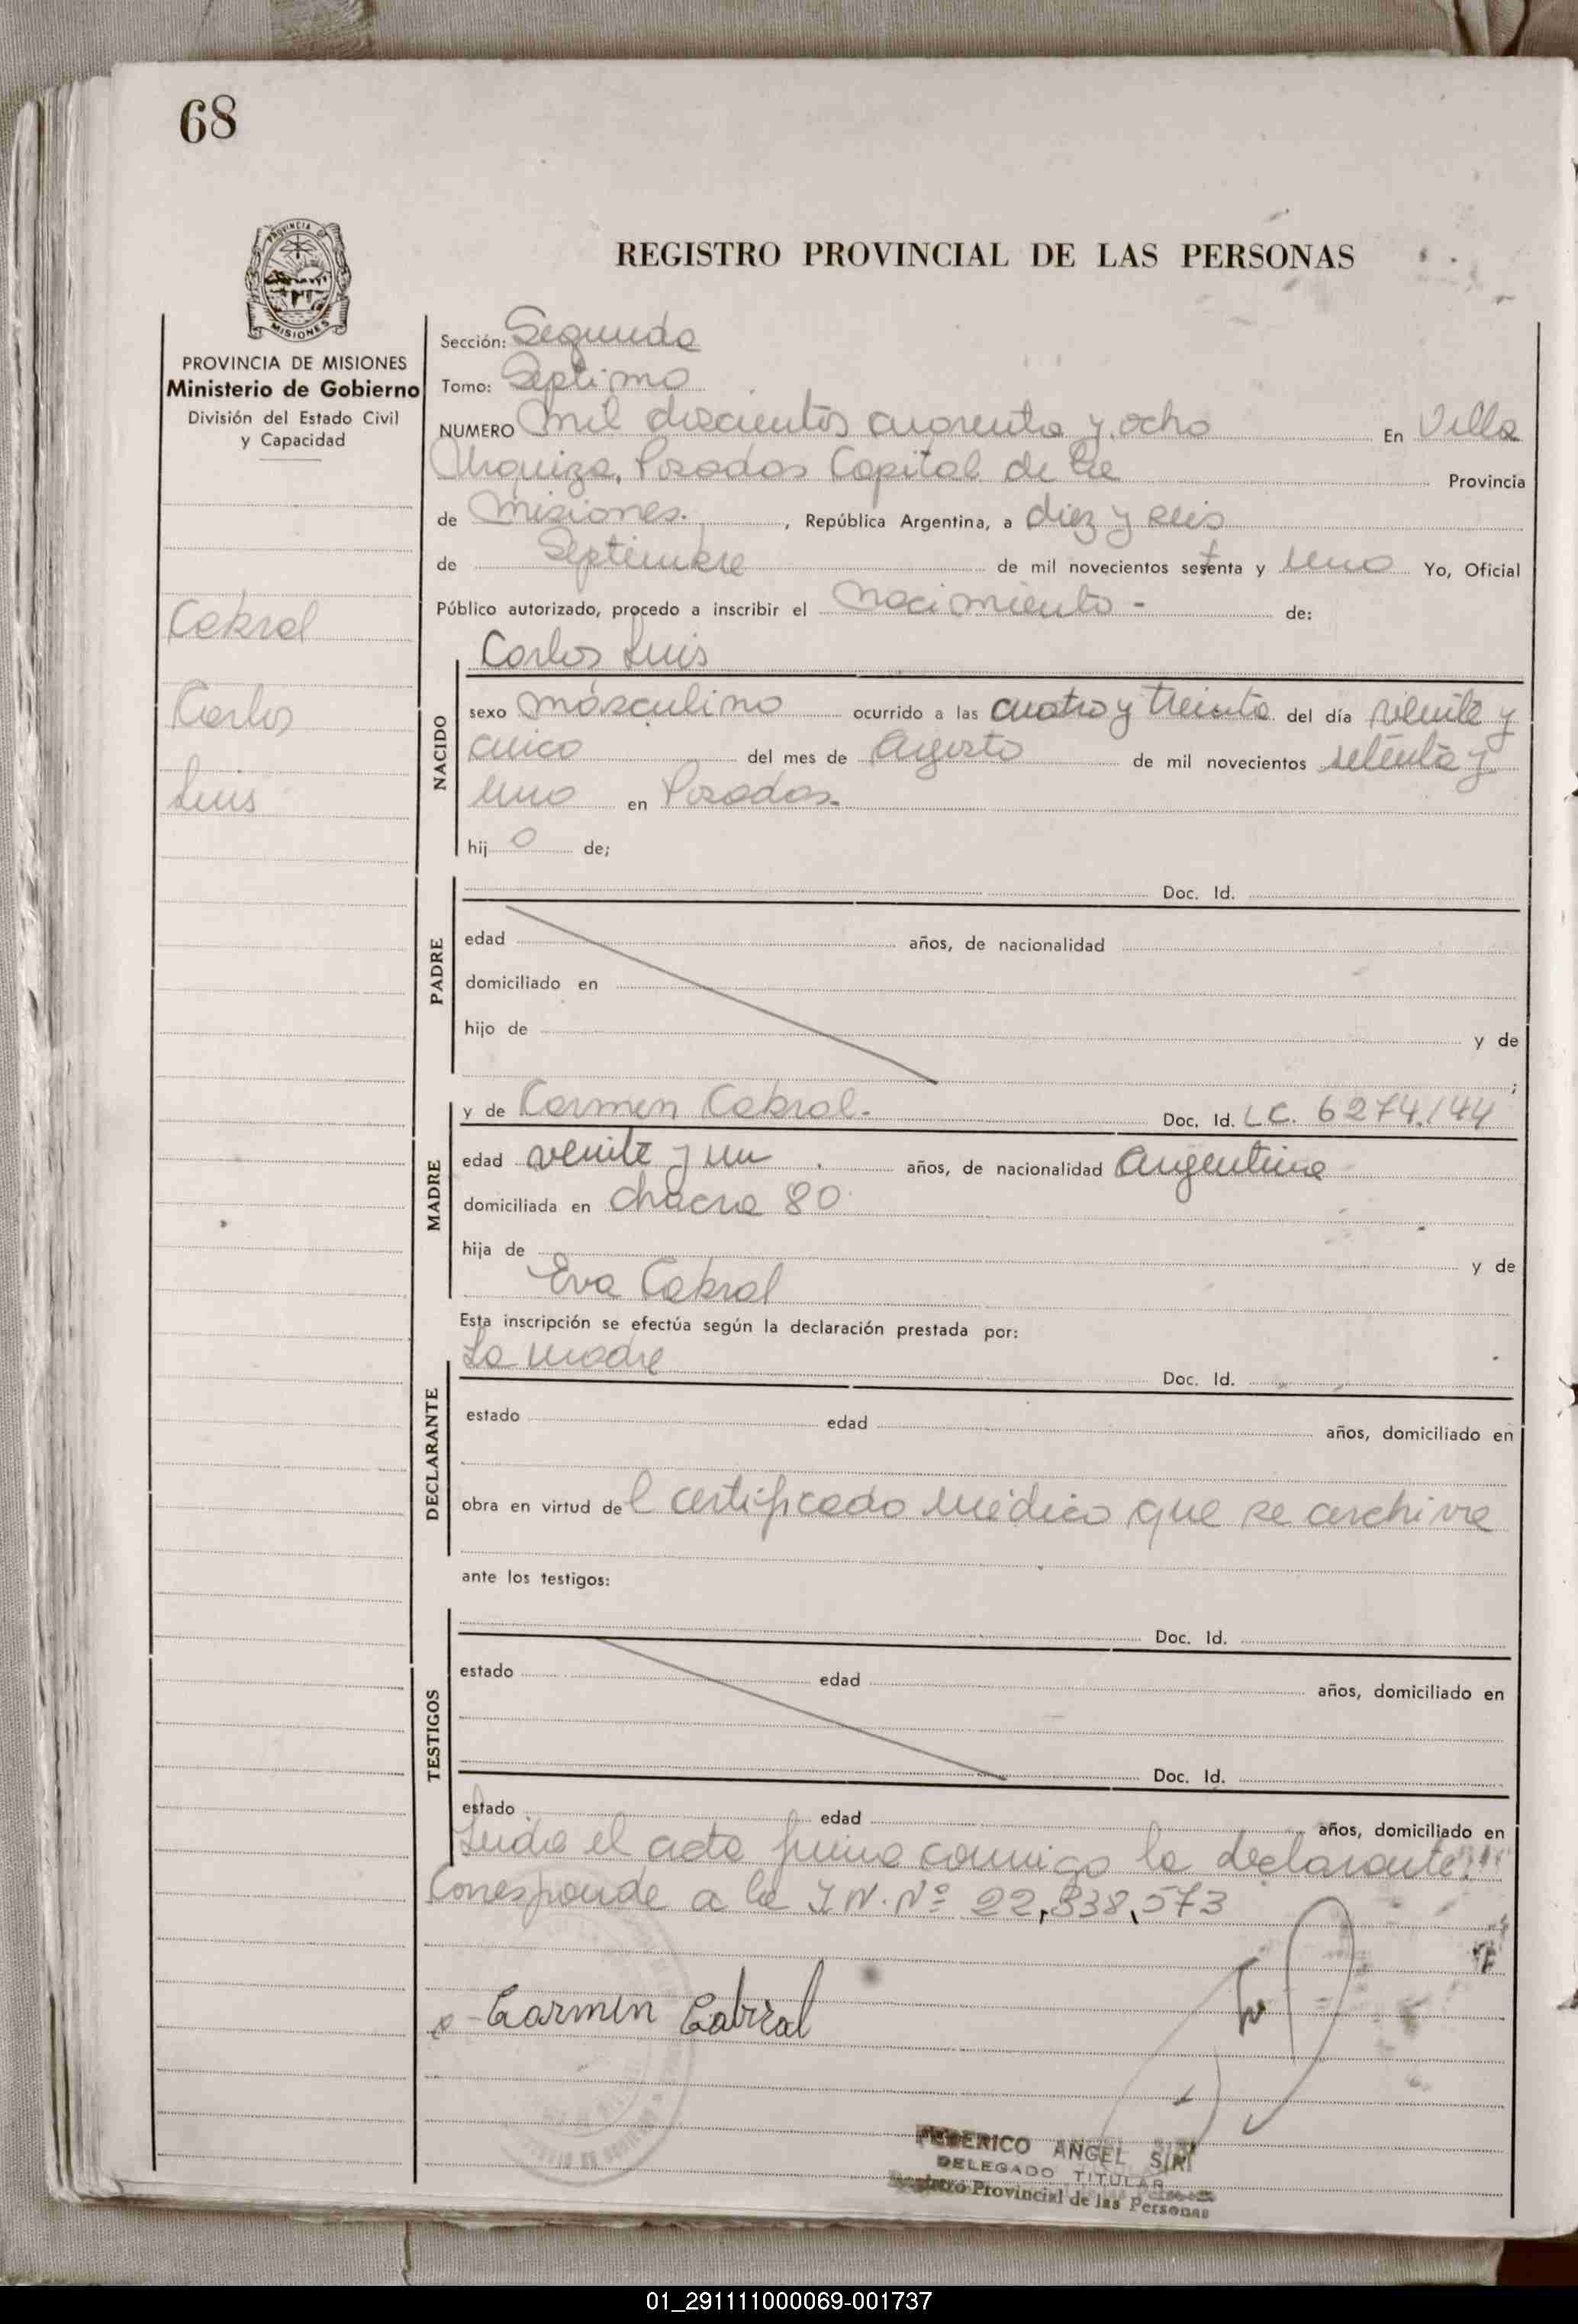 68
PROVINCIA DE
MISIONES
REGISTRO PROVINCIAL DE LAS PERSONAS
PROVINCIA DE MISIONES
Ministerio de Gobierno
División del Estado Civil
y Capacidad
Cabral
Carlos
Luis
Sección: Segunda
Tomo: Septimo
NUMERO Mil doscientos cuarenta y ocho En Villa
Urquiza, Posadas Capital de la Provincia
de Misiones. , República Argentina, a diez y seis
de Septiembre de mil novecientos setenta y uno Yo, Oficial
Público autorizado, procedo a inscribir el nacimiento - de:
Carlos Luis
NACIDO
sexo masculino ocurrido a las cuatro y treinta del día veinte y
cinco del mes de Agosto de mil novecientos setenta y
uno en Posadas.
hij o de;
PADRE
Doc. Id.
edad años, de nacionalidad
domiciliado en
hijo de y de
;
MADRE
y de Carmen Cabral. Doc. Id. LC. 6274.144
edad veinte y un años, de nacionalidad Argentina
domiciliada en chacra 80
hija de y de
Eva Cabral
Esta inscripción se efectúa según la declaración prestada por:
DECLARANTE
La madre Doc. Id.
estado edad años, domiciliado en
obra en virtud del certificado médico que se archiva
ante los testigos:
TESTIGOS
Doc. Id.
estado edad años, domiciliado en
Doc. Id.
estado edad años, domiciliado en
Leida el acta firma conmigo la declarante.
Corresponde a la I N. Nº 22,338,573
Carmen Cabral
FEDERICO ANGEL
DELEGADO TITULAR
Registro Provincial de las Personas
01_291111000069-001737